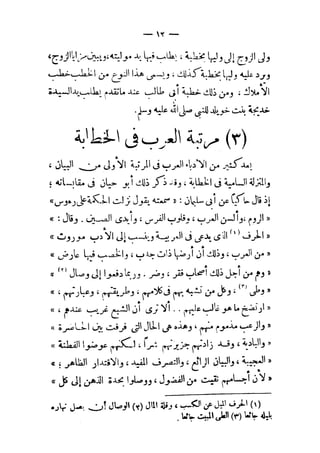 — ١٢ —
ولى الزوج إلى وليها بخطبة ، يطلب فيها يد موليته، ويبين مزايا الزوج،
ويرد عليه وليها بخطبة كذلك، ويسمى هذا النوع من الخطب خطب
الأملاك ، ومن ذلك خطبة أبى طالب عند ما تقدم يطلب يد السيدة
خديجة بنت خويلد للنبي صلى الله عليه وسلم.
(٣) مرتبة العرب فى الخطابة
يعد كثير من الأدباء العرب فى المرتبة الأولى من البيان ،
والمنزلة السامية فى الخطابة ، وقد ذكر ذلك أبو حيان فى مقابساته ؛
إذ قال حاكيًا عن أبى سليمان : « سمعته يقول نزلت الحكمة على رءوس»
« الروم، وألسن العرب ، وقلوب الفرس ، وأيدى الصين . وقال : »
« الحرف (١) الذى يدعى به فى العربية وينسب إلى الأدب موروث »
« من العرب ، وذلك أن أرضها ذات جدب ، والخصب فيها عارض »
« وهم من أجل ذلك أصحاب فقر ، وضر . وربما دفعوا إلى وصال (٢) »
« وطى (٣) ، وكل من تشبه بهم فى كلامهم ، وطريقتهم ، وعباراتهم ، »
« ارتضخ ما هو غالب عليهم . . ألا ترى أن الشبع غريب عندهم ، »
« والرعب مذموم منهم ، وهذه هى الحال التى فرقت بين الحاضرة »
« والبادية ، وقد زادتهم جزيرتهم شرًا ، لكنهم عوضوا الفطنة »
« العجيبة ، والبيان الرائع ، والتصرف المفيد ، والاقتدار الظاهر ؛ »
« لأن أجسامهم نقيت من الفضول ، ووصلوا بحدة الذهن إلى كل »
(١) الحرف الميل عن الكسب ، وقلة المال (٢) الوصال أن يصل نهاره
بليله جائعا (٣) الطى المبيت جائعا .